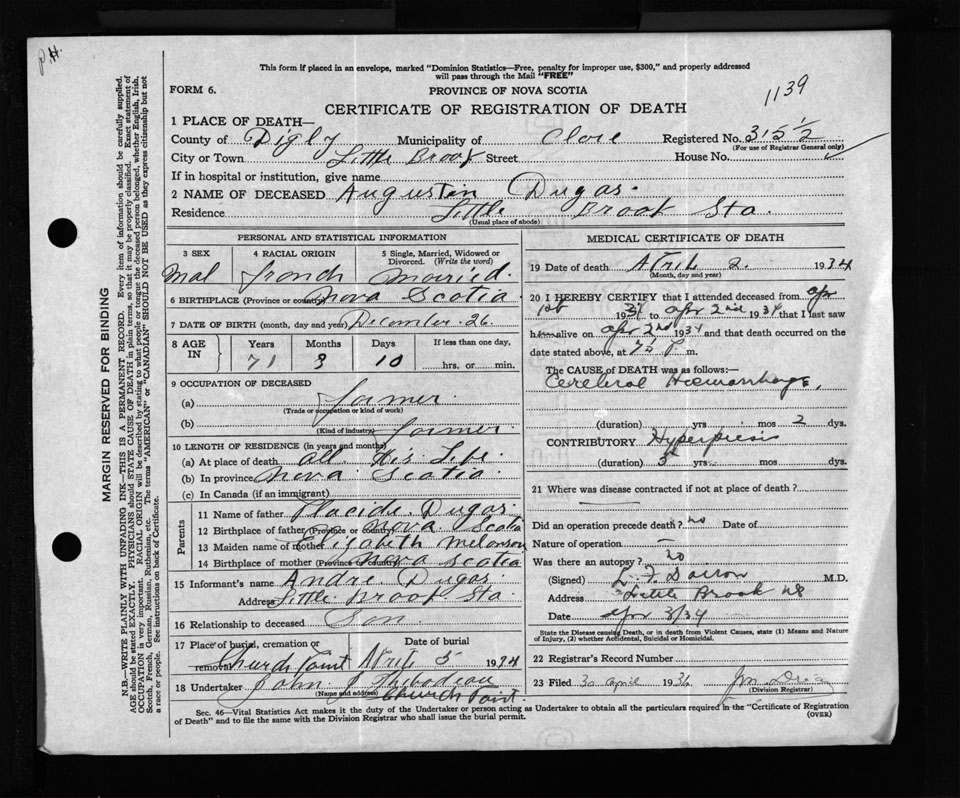 P.H.
This form if placed in an envelope, marked "Dominion Statistics—Free, penalty for improper use, $300," and properly addressed
will pass through the Mail "FREE"
FORM 6.
PROVINCE OF NOVA SCOTIA
1139
CERTIFICATE OF REGISTRATION OF DEATH
1 PLACE OF DEATH—
County of Digby Municipality of Clare Registered No. 315½
(For use of Registrar General only)
City or Town Little Brook Street House No.
If in hospital or institution, give name
2 NAME OF DECEASED Augustin Dugas.
Residence Little Brook Sta.
(Usual place of abode)
PERSONAL AND STATISTICAL INFORMATION
3 SEX 4 RACIAL ORIGIN 5 Single, Married, Widowed or
Divorced. (Write the word)
Mal french married.
6 BIRTHPLACE (Province or country) Nova Scotia
7 DATE OF BIRTH (month, day and year) December. 26.
8 AGE IN Years Months Days If less than one day,
71 3 10 hrs. or min.
9 OCCUPATION OF DECEASED
(a) farmer.
(Trade or occupation or kind of work)
(b) farmer.
(Kind of industry)
10 LENGTH OF RESIDENCE (in years and months)
(a) At place of death all His Life.
(b) In province Nova Scotia
(c) In Canada (if an immigrant)
Parents
11 Name of father Placide. Dugas.
12 Birthplace of father (Province or country) Nova Scotia
13 Maiden name of mother Elizabeth Melanson
14 Birthplace of mother (Province or country) Nova Scotia
15 Informant's name Andre. Dugas.
Address Little Brook Sta.
16 Relationship to deceased Son.
17 Place of burial, cremation or Date of burial
removal Church Point April 5 1934
18 Undertaker John J Thibodeau
(Name and address) Church Point
MEDICAL CERTIFICATE OF DEATH
19 Date of death April 2. 1934
(Month, day and year)
20 I HEREBY CERTIFY that I attended deceased from Apr
1st 1934 to Apr 2nd 1934 that I last saw
him alive on Apr 2nd 1934 and that death occurred on the
date stated above, at P. m.
The CAUSE OF DEATH was as follows:—
Cerebral Haemorrhage.
(duration) yrs. mos. 2 dys.
CONTRIBUTORY
(duration) 5 yrs. mos. dys.
21 Where was disease contracted if not at place of death?
Did an operation precede death? no Date of
Nature of operation —
Was there an autopsy? no
(Signed) M.D.
Address Little Brook NS
Date Apr 3/34
State the Disease causing Death, or in death from Violent Causes, state (1) Means and Nature
of Injury, (2) whether Accidental, Suicidal or Homicidal.
22 Registrar's Record Number
23 Filed 30 April 1934
(Division Registrar)
Sec. 46—Vital Statistics Act makes it the duty of the Undertaker or person acting as Undertaker to obtain all the particulars required in the "Certificate of Registration
of Death" and to file the same with the Division Registrar who shall issue the burial permit. (OVER)
MARGIN RESERVED FOR BINDING
N.B.—WRITE PLAINLY WITH UNFADING INK—THIS IS A PERMANENT RECORD. Every item of information should be carefully supplied.
AGE should be stated EXACTLY. PHYSICIANS should STATE CAUSE OF DEATH in plain terms, so that it may be properly classified. Exact statement of
OCCUPATION is very important. RACIAL ORIGIN will be described by stating to what people or tongue the deceased person belonged, whether English, Irish,
Scotch, French, German, Russian, Ruthenian, etc. The terms "AMERICAN" or "CANADIAN" SHOULD NOT BE USED as they express citizenship but not
a race or people. See instructions on back of Certificate.